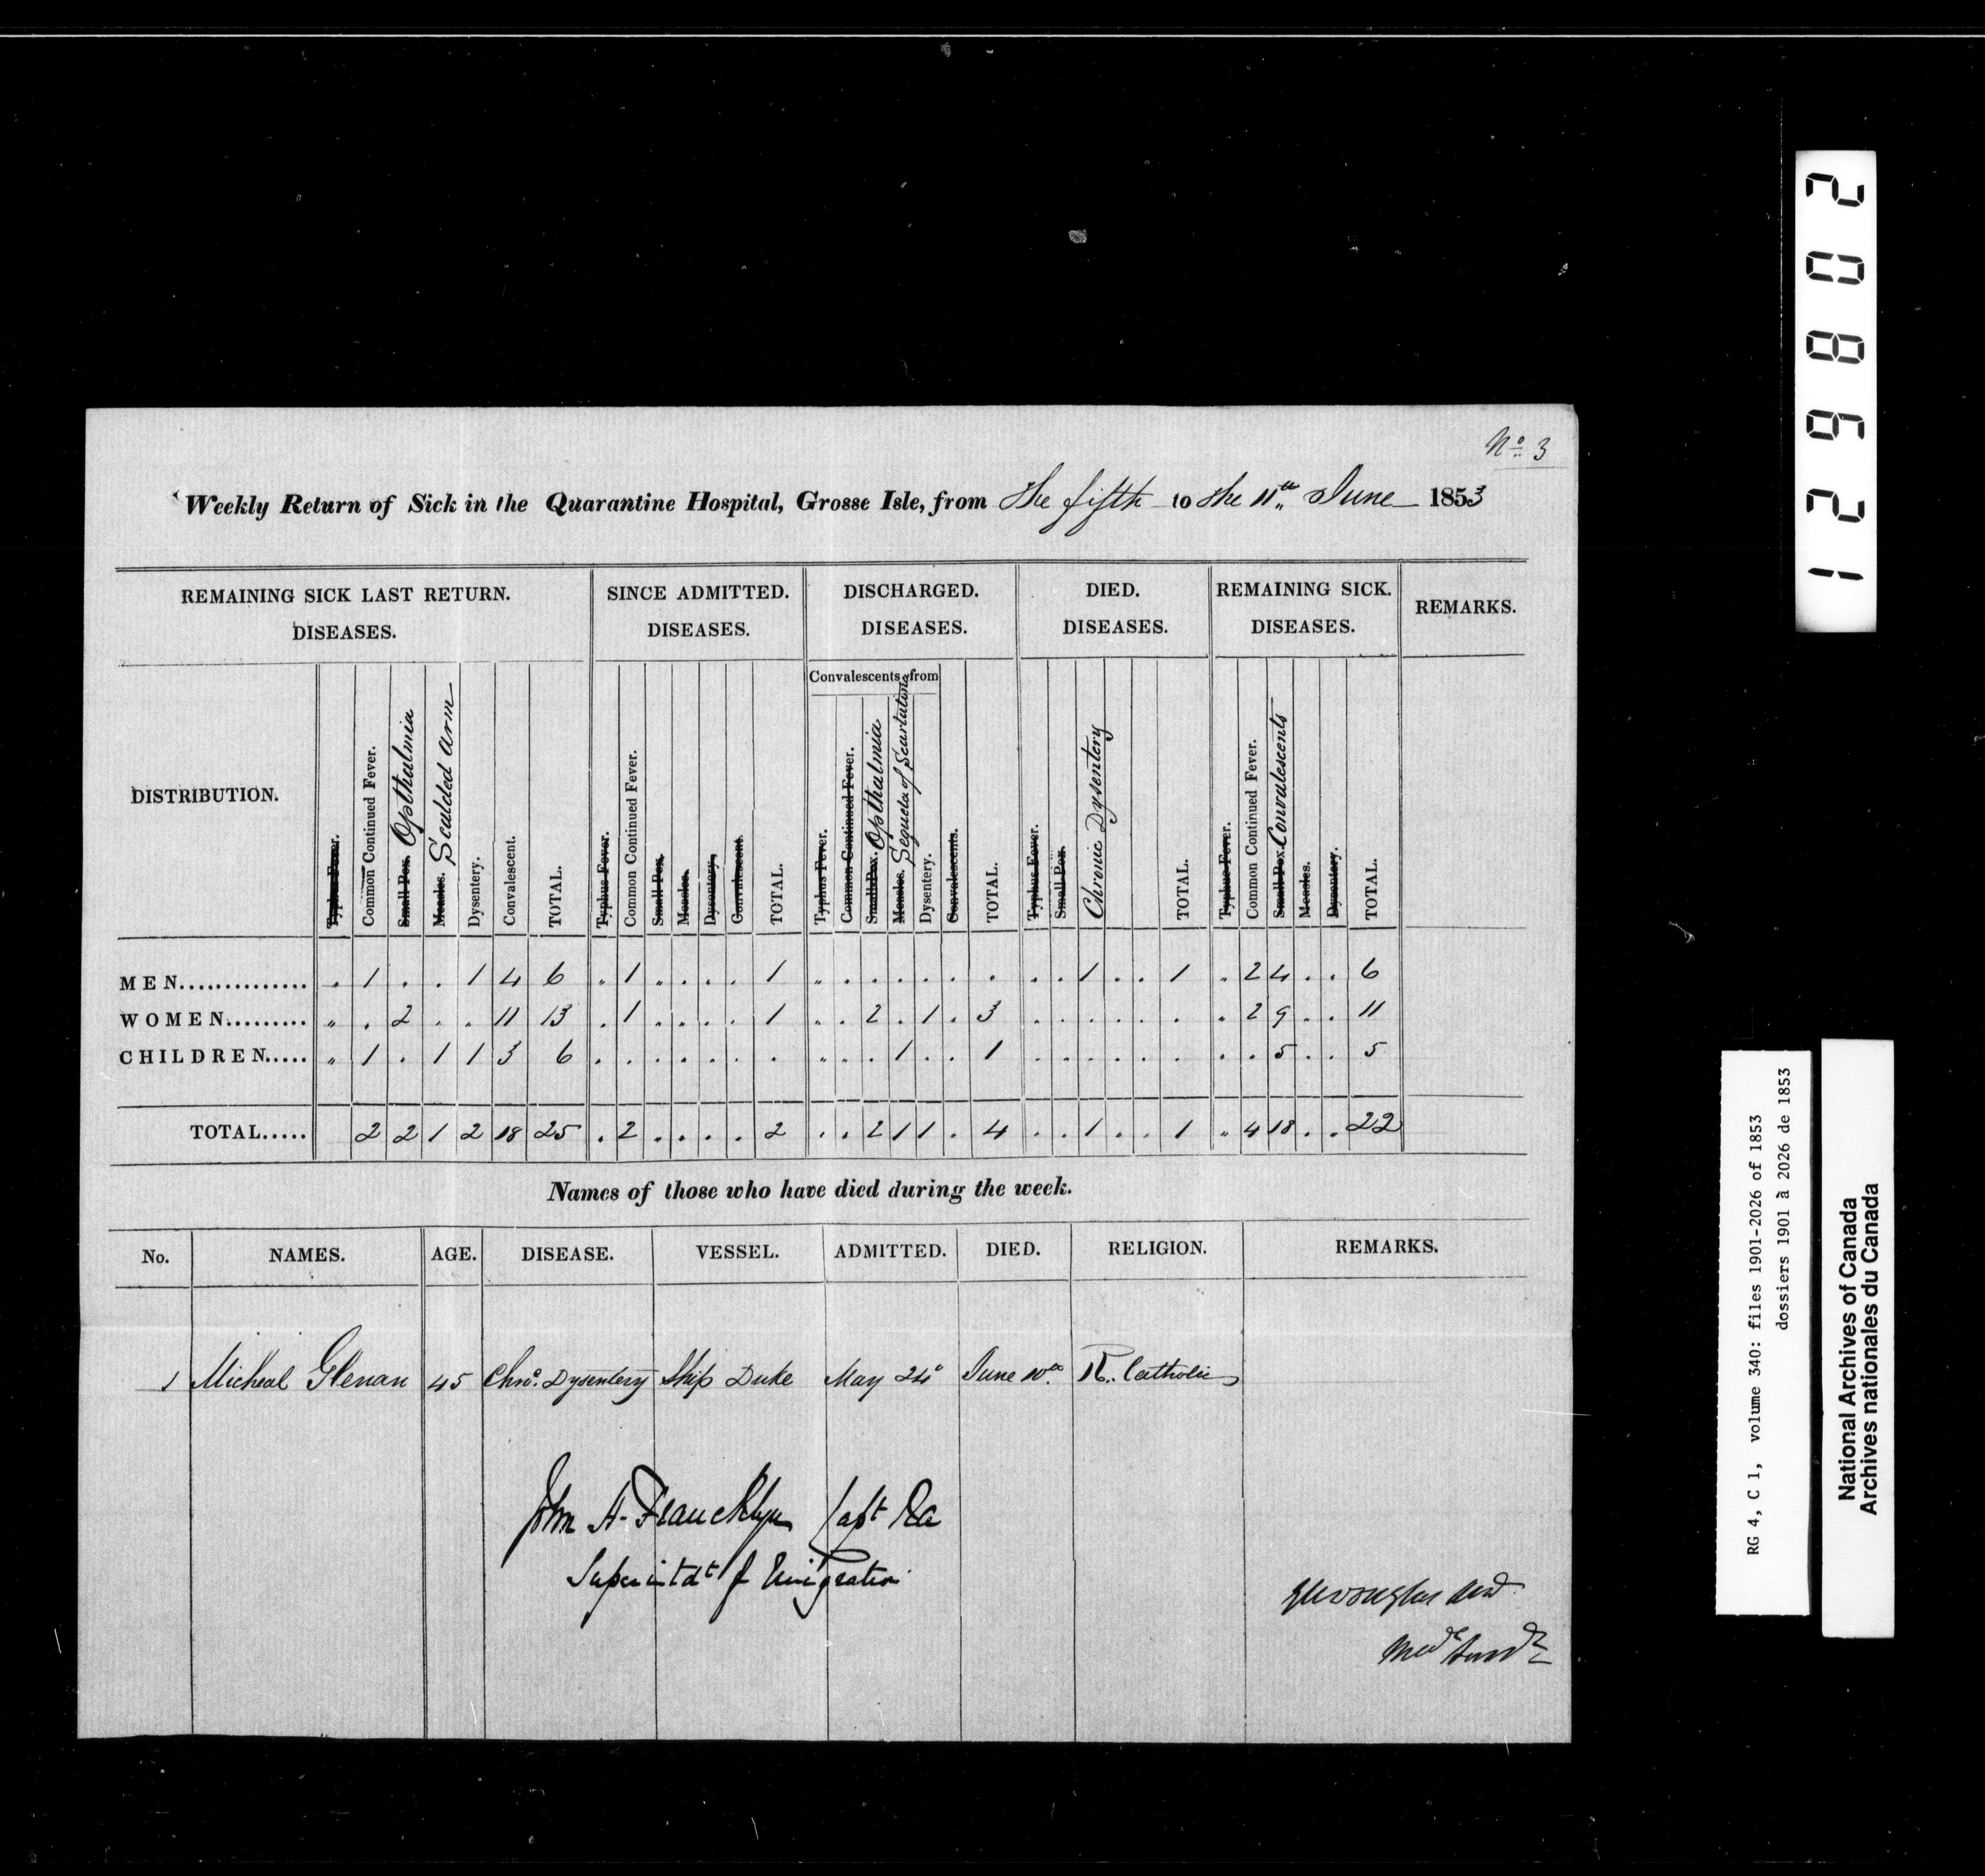 No. 3
Weekly Return of Sick in the Quarantine Hospital, Grosse Isle, from the fifth to the 11th June 1853
REMAINING SICK LAST RETURN. DISEASES. | SINCE ADMITTED. DISEASES. | DISCHARGED. DISEASES. | DIED. DISEASES. | REMAINING SICK. DISEASES. | REMARKS.
Convalescents from
DISTRIBUTION. | Typhus Fever. | Common Continued Fever. | Small Pox. Opthalmia | Measles. Scalded Arm | Dysentery. | Convalescent. | TOTAL. | Typhus Fever. | Common Continued Fever. | Small Pox. | Measles. | Dysentery. | Convalescent. | TOTAL. | Typhus Fever. | Common Continued Fever. | Small Pox. Opthalmia | Measles. Sequela of Scarlatina | Dysentery. | Convalescents. | TOTAL. | Typhus Fever. | Small Pox. | Chronic Dysentery | TOTAL. | Typhus Fever. | Common Continued Fever. | Small Pox. Convalescents | Measles. | Dysentery. | TOTAL.
MEN.............. | „ | 1 | . | . | 1 | 4 | 6 | „ | 1 | „ | . | . | . | 1 | „ | . | . | . | . | . | . | . | . | 1 | . | . | 1 | „ | 2 | 4 | . | . | 6
WOMEN......... | „ | . | 2 | . | . | 11 | 13 | . | 1 | . | . | . | . | 1 | „ | . | 2 | . | 1 | . | 3 | . | . | . | . | . | . | . | 2 | 9 | . | . | 11
CHILDREN..... | „ | 1 | . | 1 | 1 | 3 | 6 | . | . | . | . | . | . | . | „ | . | . | 1 | . | . | 1 | . | . | . | . | . | . | . | . | 5 | . | . | 5
TOTAL..... | 2 | 2 | 1 | 2 | 18 | 25 | . | 2 | . | . | . | . | 2 | . | . | 2 | 1 | 1 | . | 4 | . | . | 1 | . | . | 1 | „ | 4 | 18 | . | . | 22
Names of those who have died during the week.
No. | NAMES. | AGE. | DISEASE. | VESSEL. | ADMITTED. | DIED. | RELIGION. | REMARKS.
1 | Micheal Glenan | 45 | Chro. Dysentery | Ship Duke | May 24 | June 10th | R. Catholic
John A. Francklyn Capt Ra
Superintdt of Emigration
Douglas MD
Med Supdt
2 0 8 6 2 1
RG 4, C 1, volume 340: files 1901-2026 of 1853
dossiers 1901 à 2026 de 1853
National Archives of Canada
Archives nationales du Canada